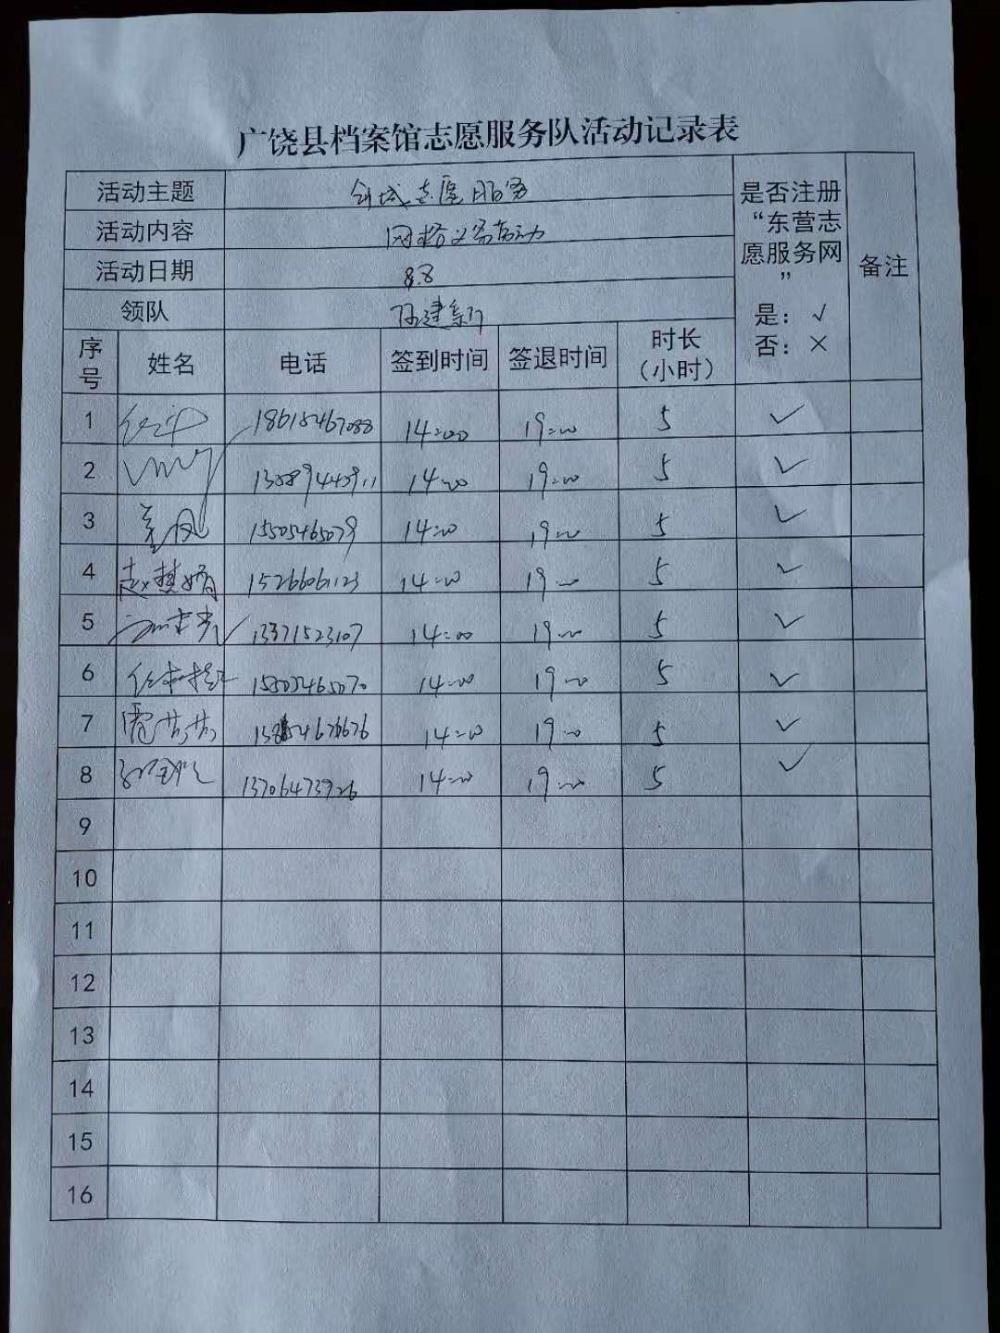 广饶县档案馆志愿服务队活动记录表
活动主题 创城志愿服务
活动内容 网格义务劳动
活动日期 8.8
领队 建新
是否注册“东营志愿服务网”
是：√
否：×
备注
序号 姓名 电话 签到时间 签退时间 时长（小时）
1 18615467088 14:00 19:00 5 √
2 14:00 19:00 5 √
3 15505465079 14:00 19:00 5 √
4 赵梦娇 15266061123 14:00 19:00 5 √
5 13371523107 14:00 19:00 5 √
6 15505465070 14:00 19:00 5 √
7 14:00 19:00 5 √
8 13706473926 14:00 19:00 5 √
9
10
11
12
13
14
15
16